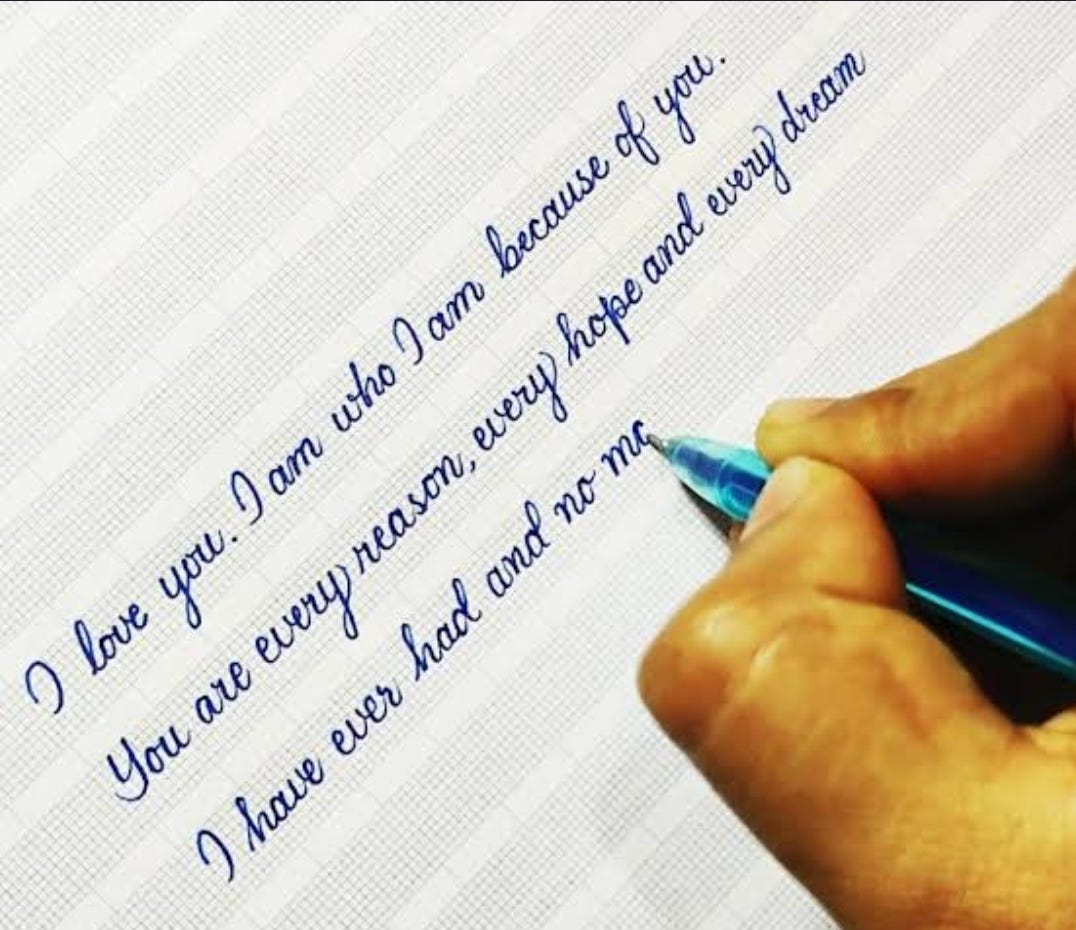 I love you. I am who I am because of you.
You are every reason, every hope and every dream
I have ever had and no